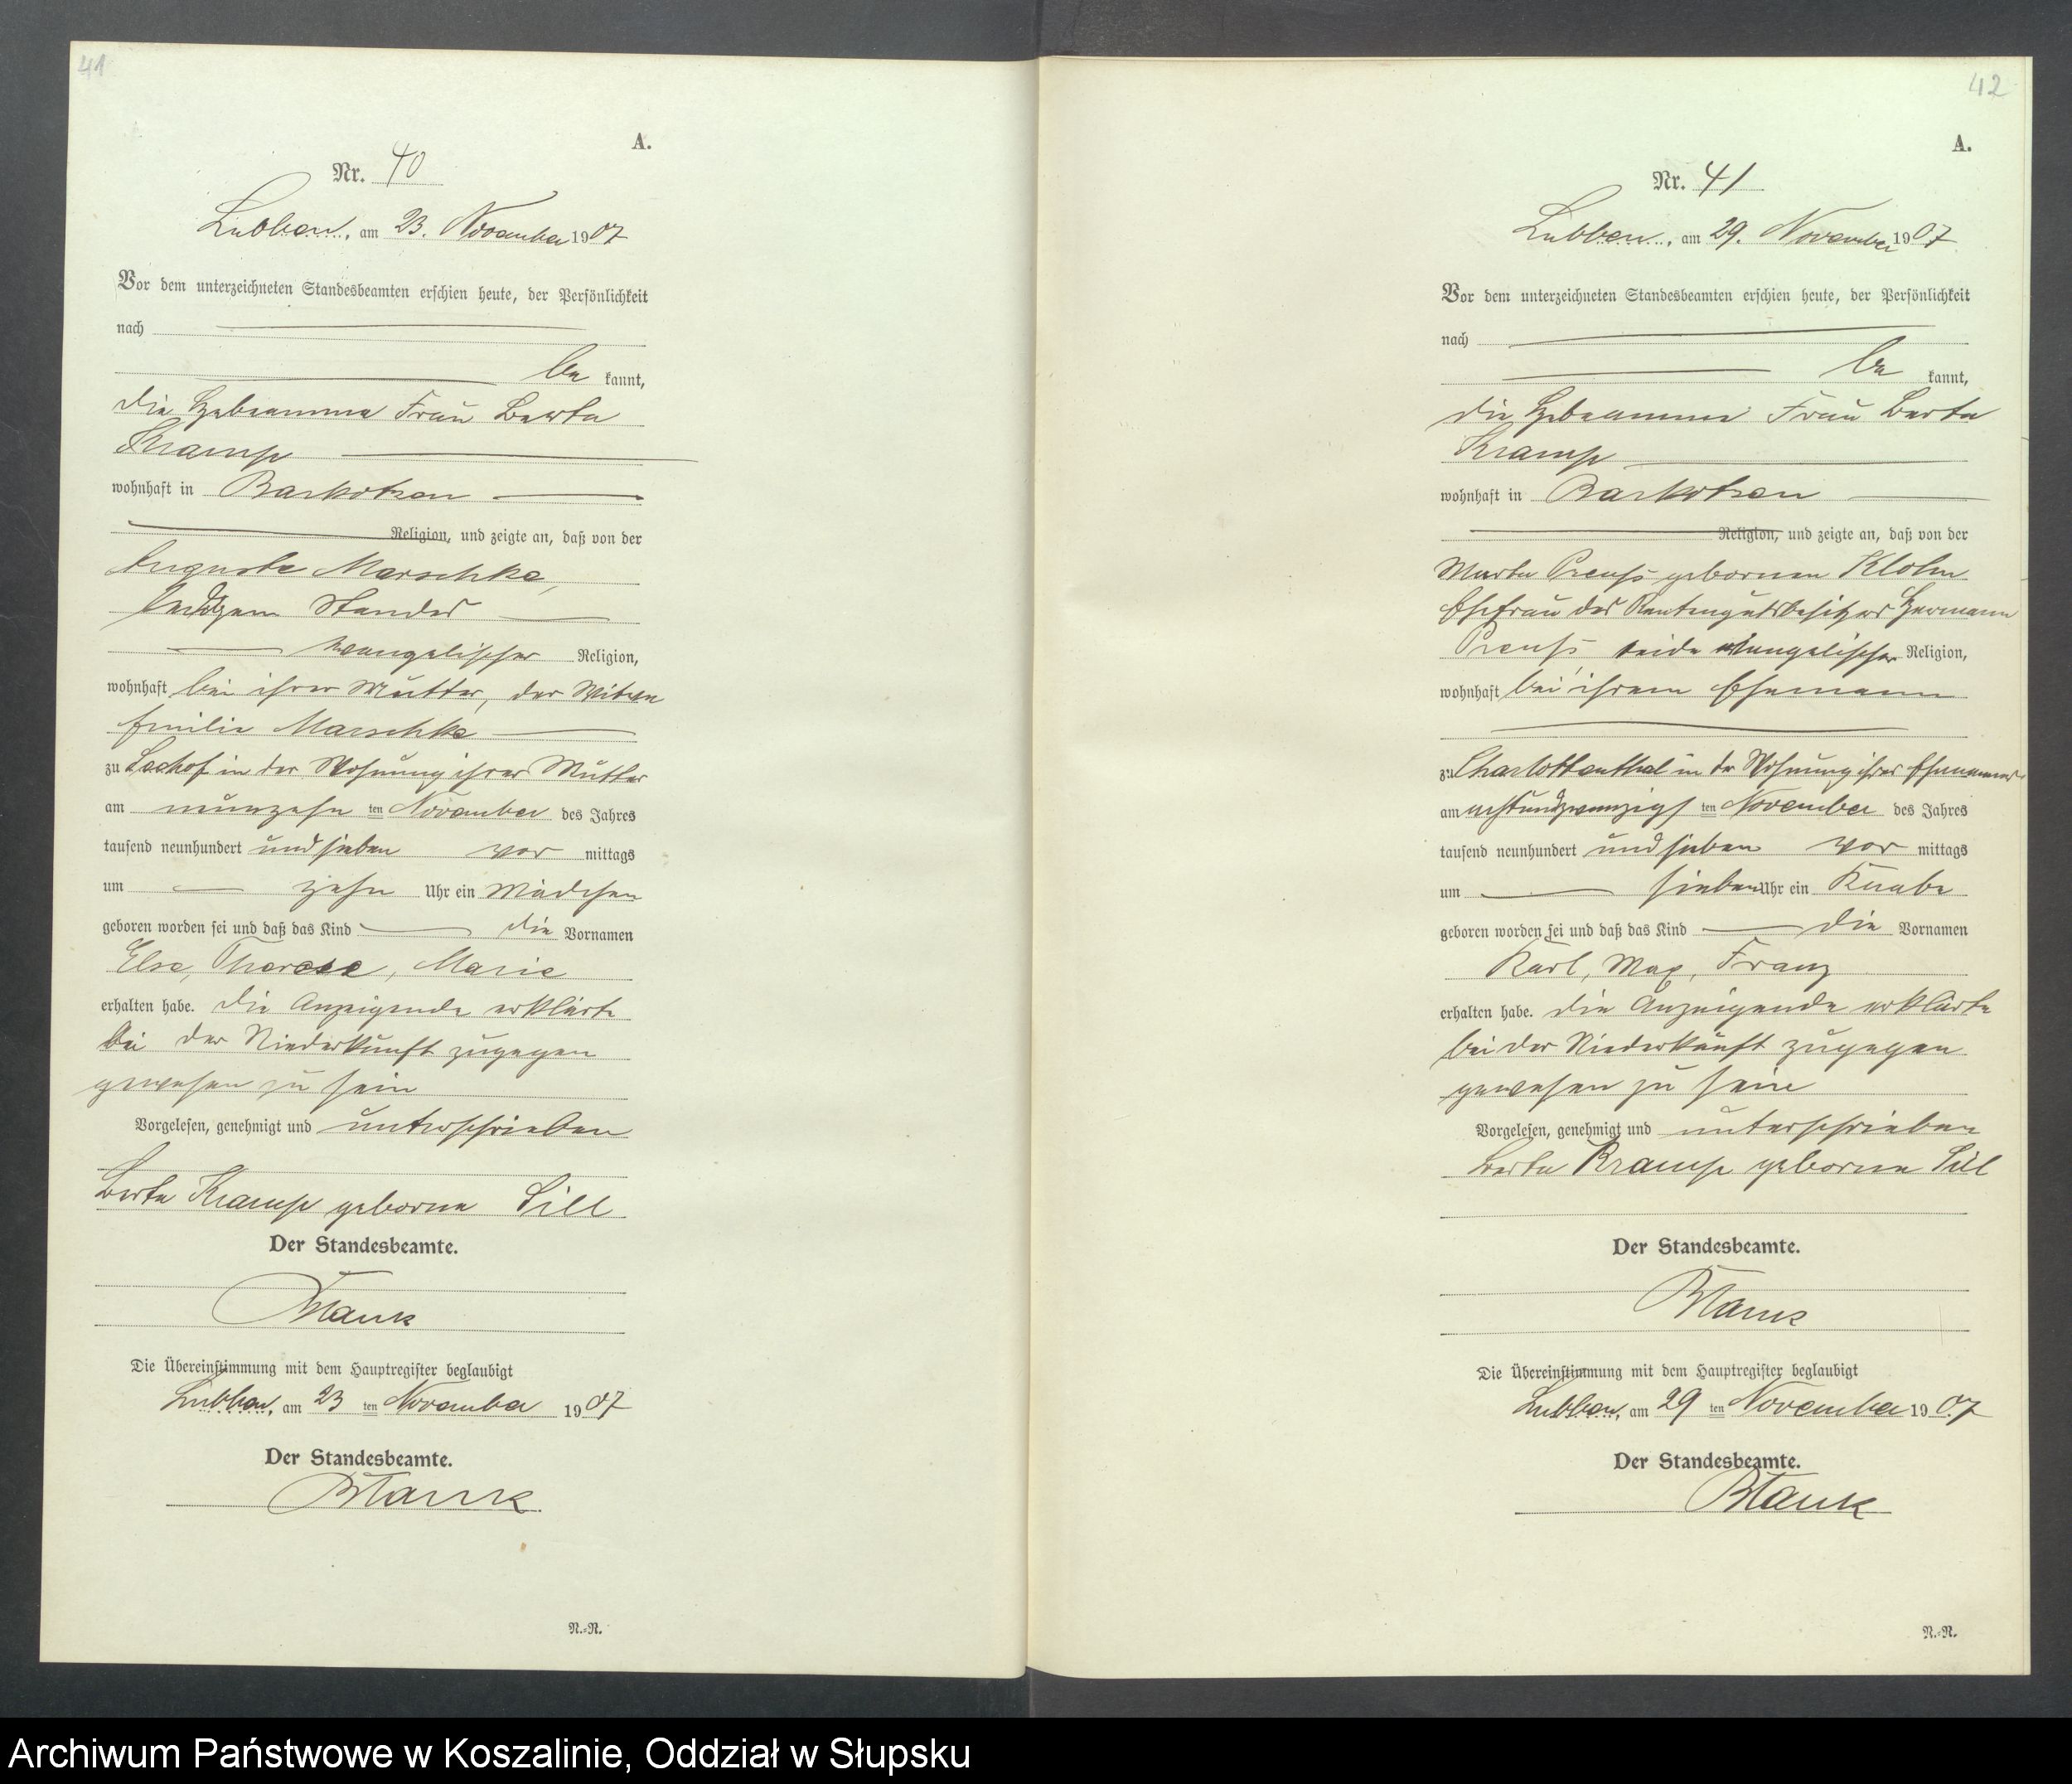 41
A.
Nr. 40
Lubben, am 23. November 1907
Vor dem unterzeichneten Standesbeamten erschien heute, der Persönlichkeit
nach
be kannt,
die Hebeamme Frau Berta
Kramp
wohnhaft in Barkotzen
Religion, und zeigte an, daß von der
Auguste Marschke,
ledigen Standes
evangelischer Religion,
wohnhaft bei ihrer Mutter, der Witwe
Emilie Marschke
zu Seehof in der Wohnung ihrer Mutter
am neunzehn ten November des Jahres
tausend neunhundert und sieben vor mittags
um zehn Uhr ein Mädchen
geboren worden sei und daß das Kind die Vornamen
Else, Therese, Marie
erhalten habe. Die Anzeigende erklärte
bei der Niederkunft zugegen
gewesen zu sein
Vorgelesen, genehmigt und unterschrieben
Berta Kramp geborne Sill
Der Standesbeamte.
Blank
Die Übereinstimmung mit dem Hauptregister beglaubigt
Lubben, am 23 ten November 1907
Der Standesbeamte.
Blank
N.=N.
42
A.
Nr. 41
Lubben, am 29. November 1907
Vor dem unterzeichneten Standesbeamten erschien heute, der Persönlichkeit
nach
be kannt,
die Hebeamme Frau Berta
Kramp
wohnhaft in Barkotzen
Religion, und zeigte an, daß von der
Marta Preuß gebornen Klohn
Ehefrau des Rentengutsbesitzers Hermann
Preuß beide evangelischer Religion,
wohnhaft bei ihrem Ehemann
zu Charlottenthal in der Wohnung ihres Ehemannes
am achtundzwanzigs ten November des Jahres
tausend neunhundert und sieben vor mittags
um sieben Uhr ein Knabe
geboren worden sei und daß das Kind die Vornamen
Karl, Max, Franz
erhalten habe. Die Anzeigende erklärte
bei der Niederkunft zugegen
gewesen zu sein
Vorgelesen, genehmigt und unterschrieben
Berta Kramp geborne Sill
Der Standesbeamte.
Blank
Die Übereinstimmung mit dem Hauptregister beglaubigt
Lubben, am 29 ten November 1907
Der Standesbeamte.
Blank
N.=N.
Archiwum Państwowe w Koszalinie, Oddział w Słupsku